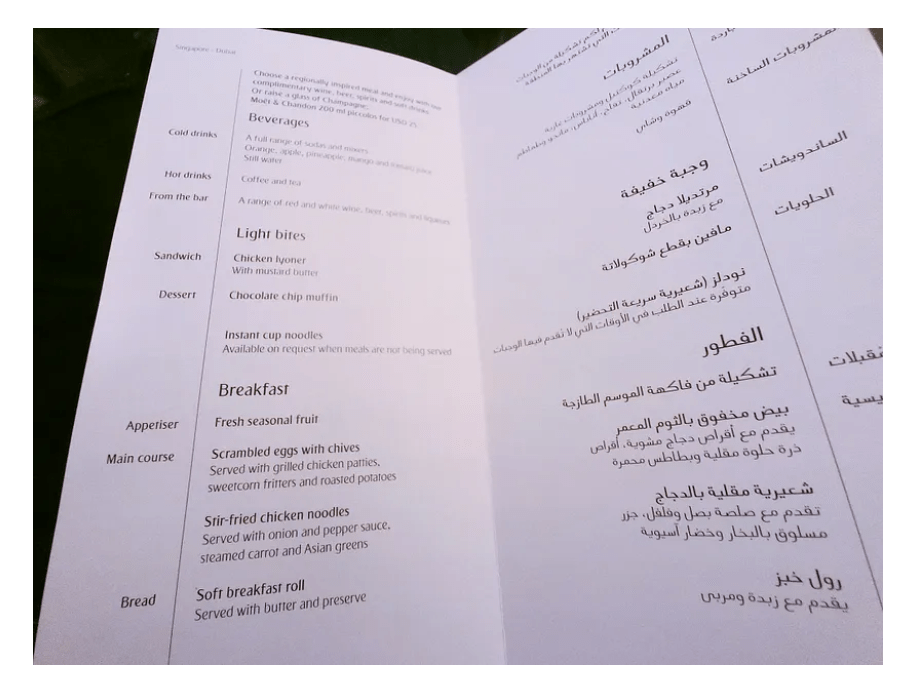 Singapore - Dubai
Choose a regionally inspired meal and enjoy with our
complimentary wine, beer, spirits and soft drinks.
Or raise a glass of Champagne;
Moët & Chandon 200 ml piccolos for USD 25.
Beverages
Cold drinks
A full range of sodas and mixers
Orange, apple, pineapple, mango and tomato juice
Still water
Hot drinks
Coffee and tea
From the bar
A range of red and white wine, beer, spirits and liqueurs
Light bites
Sandwich
Chicken lyoner
With mustard butter
Dessert
Chocolate chip muffin
Instant cup noodles
Available on request when meals are not being served
Breakfast
Appetiser
Fresh seasonal fruit
Main course
Scrambled eggs with chives
Served with grilled chicken patties,
sweetcorn fritters and roasted potatoes
Stir-fried chicken noodles
Served with onion and pepper sauce,
steamed carrot and Asian greens
Bread
Soft breakfast roll
Served with butter and preserve
تشكيلة من الوجبات
التي تشتهر بها المنطقة
المشروبات
باردة
تشكيلة كوكتيل ومشروبات غازية
عصير برتقال، تفاح، أناناس، مانجو وطماطم
مياه معدنية
المشروبات الساخنة
قهوة وشاي
وجبة خفيفة
الساندويشات
مرتديلا دجاج
مع زبدة بالخردل
الحلويات
مافين بقطع شوكولاتة
نودلز (شعيرية سريعة التحضير)
متوفرة عند الطلب في الأوقات التي لا تقدم فيها الوجبات
الفطور
تشكيلة من فاكهة الموسم الطازجة
بيض مخفوق بالثوم المعمر
يقدم مع أقراص دجاج مشوية، أقراص
ذرة حلوة مقلية وبطاطس محمرة
شعيرية مقلية بالدجاج
تقدم مع صلصة بصل وفلفل، جزر
مسلوق بالبخار وخضار آسيوية
رول خبز
يقدم مع زبدة ومربى